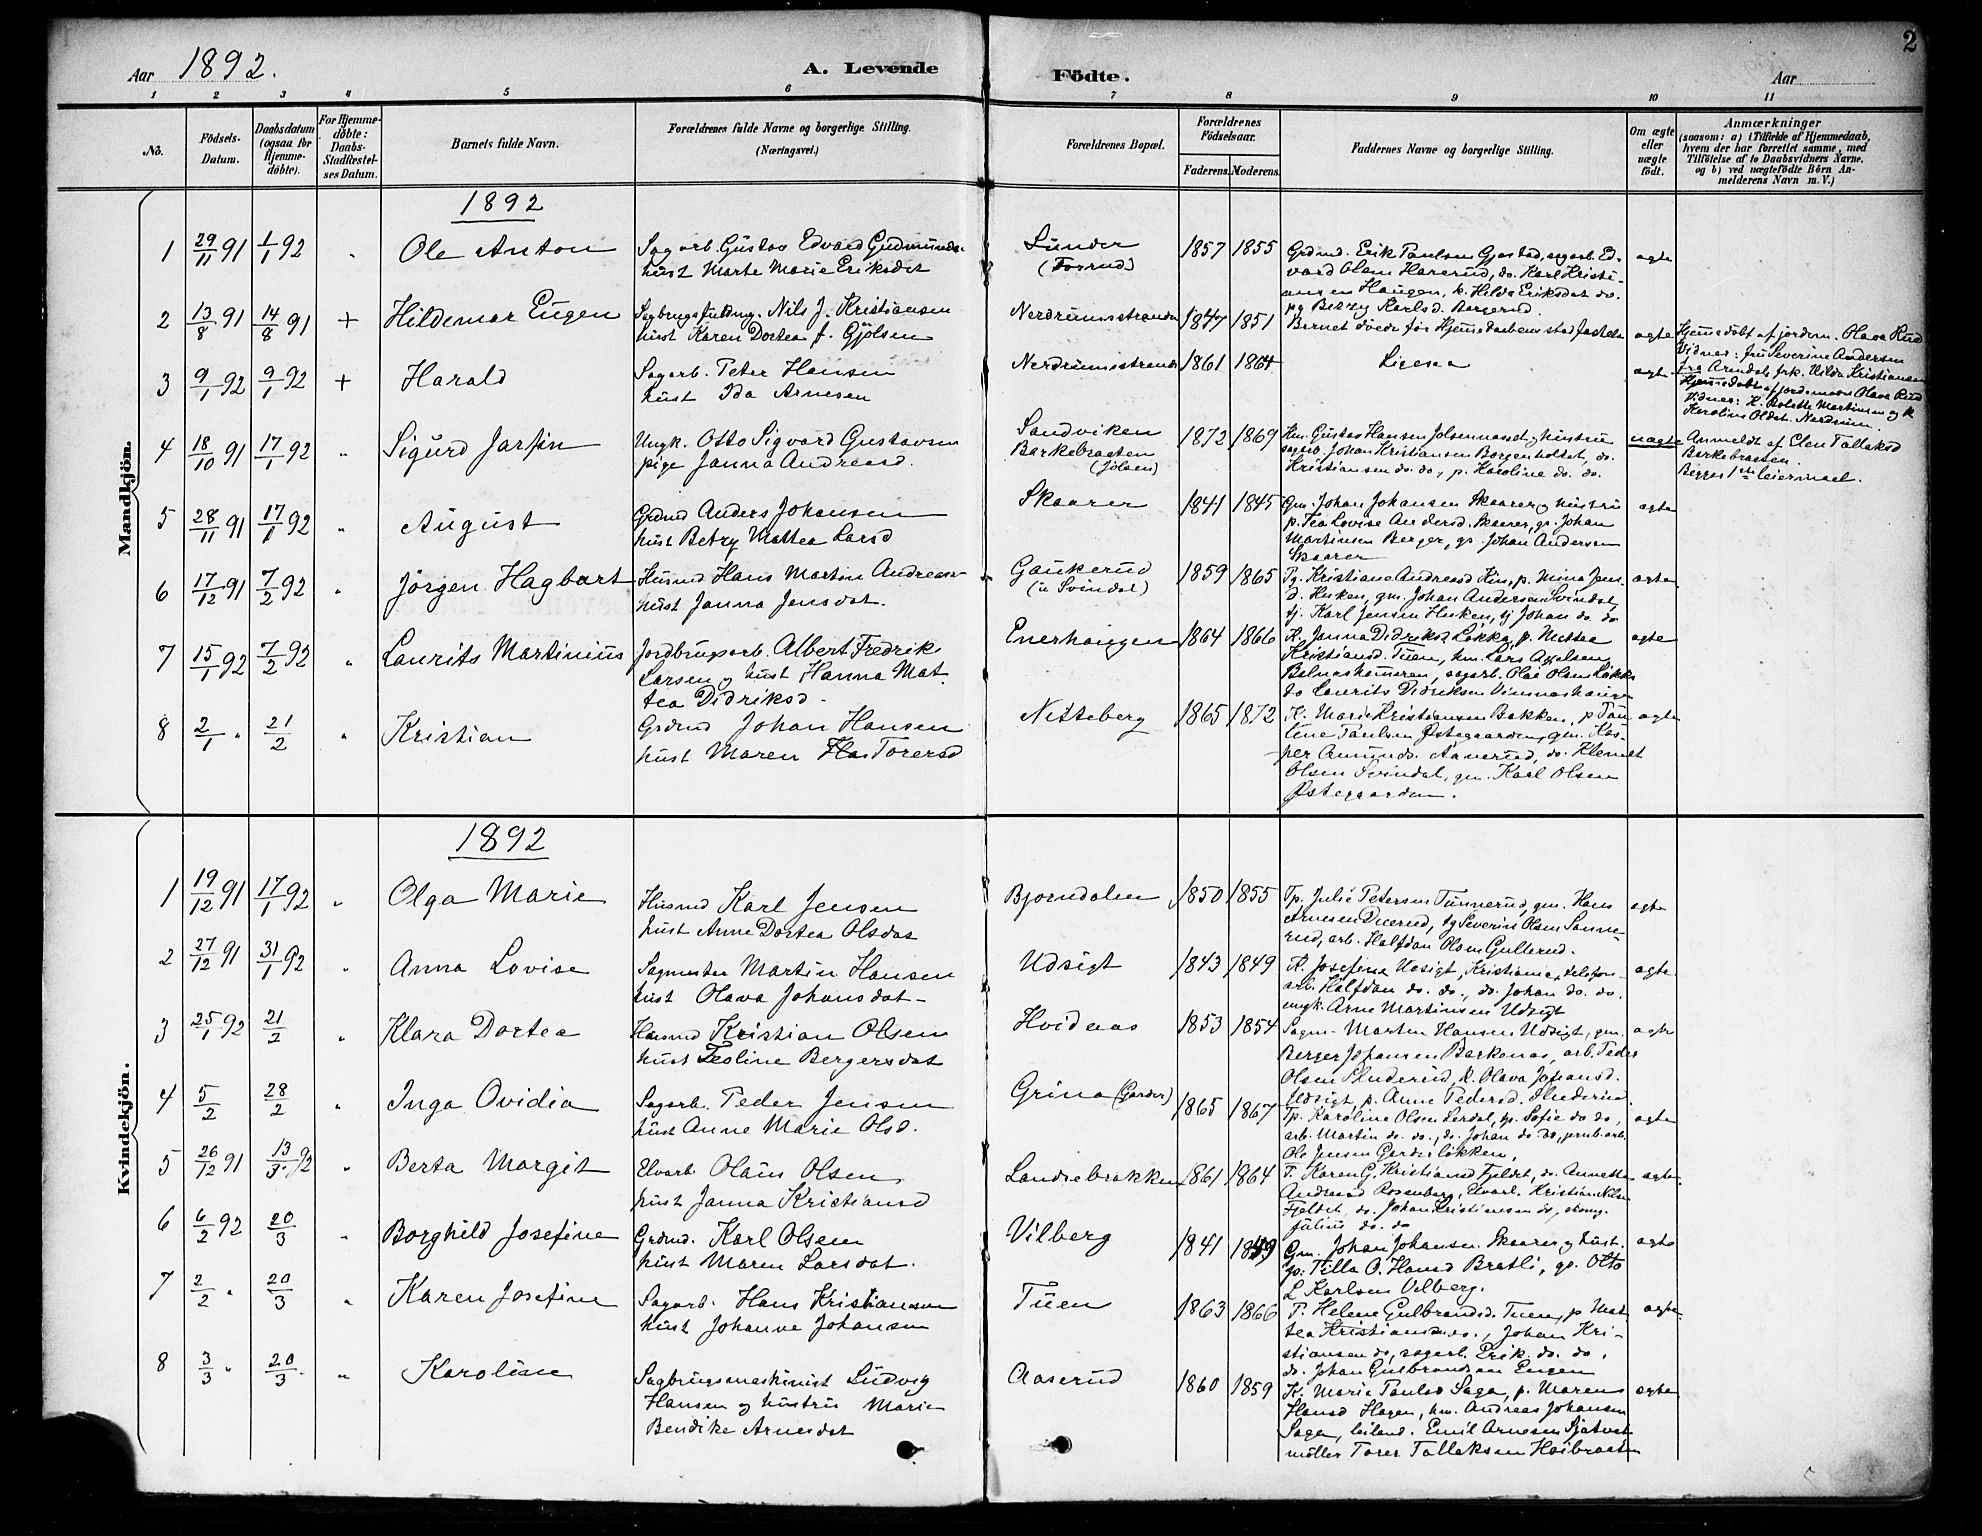 2
Aar 1892.
A. Levende Födte.
Aar
1 2 3 4 5 6 7 8 9 10 11
No.
Födsels-Datum.
Daabsdatum (ogsaa for Hjemmedøbte).
For Hjemmedøbte: Daabs-Stadfæstelses Datum.
Barnets fulde Navn.
Forældrenes fulde Navne og borgerlige Stilling. (Næringsvei.)
Forældrenes Bopæl.
Forældrenes Födselsaar.
Faderens. Moderens.
Faddernes Navne og borgerlige Stilling.
Om ægte eller uægte födt.
Anmærkninger
(saasom: a) i Tilfælde af Hjemmedaab, hvem der har forrettet samme, med Tilföielse af to Daabsvidners Navne, og b) ved uægtefödte Börn Anmelderens Navn m. V.)
Mandkjön.
1892
1 29/11 91 1/1 92 " Ole Anton
Sagarb. Gustav Edvard Gudmunds.
hust Marte Marie Eriksdat
Lunder
(Tosrud)
1857 1855
Grdmd. Erik Paulsen Gjestad, sagarb. Ed-
vard Olsen Harerud, do. Karl Kristi-
ansen Haugen, k. Hilda Eriksdat do.
pg Betzy Karlsd. Borgerud.
ægte
2 13/8 91 14/8 91 + Hildemar Eugen
Sagbrugsfuldmg. Nils J. Kristiansen
hust Karen Dortea f. Gjölsen
Nerdrumsstranden
1847 1851
Barnet døede før Hjemedaabens stadfæstelse
ægte
Hjemedøbt af jordem. Olava Rud
Vidner: fru Severine Andersen
fra Arendal, frk. Hilda Kristiansen
3 9/1 92 9/1 92 + Harald
Sagarb. Peter Hansen
hust Ida Arnesen
Nerdrumsstranden
1861 1864
Ligesaa
ægte
Hjemedøbt af jordemoer Olava Rud
Vidner: K. Bolette Martinsen og k
Karoline Oldst. Nerdrum.
4 18/10 91 17/1 92 " Sigurd Jarfin
Ungk. Otto Sigvard Gustavsen
pige Janna Andreasd.
Sandviken
Barkebraaten
(Jölsen)
1872 1869
Hm. Gustav Hansen Jolsennesset og hustru
sagarb. Johan Kristiansen Borgenholtet, do.
Kristiansen do. do., p. Karoline do. do.
uægte
Anmeldt af Elen Tallaksd
Barkebraaten.
Begges 1ste leiermaal.
5 28/11 91 17/1 92 " August
Grdmd Anders Johansen
hust Betzy Mattea Larsd
Skaarer
1841 1845
Gm. Johan Johansen Skaarer og hustru
p. Tea Lovise Andersd. Skaarer, gs. Johan
Martinsen Berger, gs. Johan Andersen
Skaarer
ægte
6 17/12 91 7/2 92 " Jörgen Hagbart
Husmd Hans Martin Andreas-
hust Janna Jensdat.
Gaukerud
(u Svindal)
1859 1865
Pg. Kristiane Andreasd Kin, p. Mina Jens
d. Husken, gm. Johan Andersen Svindal,
tj. Karl Jensen Husken, tj Johan do. do
ægte
7 15/1 92 7/2 92 " Laurits Martinius
Jordbrugsarb. Albert Fredrik
Larsen og hust Hanna Mat-
tea Didriksd.
Enerhaugen
1864 1866
K. Janna Didriksd Løkka, p. Mattea
Kristiansd. Tuen, hm. Lars Axelsen
Belnashameren, sagarb. Ole Olsen Løkka
do Laurits Didriksen Vinnashaugen
ægte
8 2/1 " 21/2 " Kristian
Grdmd Johan Hansen
hust Maren Torersd
Nitteberg
1865 1872
K. Marie Kristiansen Bakken, p. Pau-
line Paulsen Østegaarden, gm. Kas-
per Amunds. Aamerud, do. Klemet
Olsen Svindal, gm. Karl Olsen
Østegaarden.
ægte
Kvindekjön.
1892
1 19/12 91 17/1 92 " Olga Marie
Husmd Karl Jensen
hust Anne Dortea Olsdat
Bjorndalen
1850 1855
Tp. Julie Petersen Tunnerud, gm. Hans
Arnesen Duerud, tg Severin Olsen Sanne-
rud, arb. Halfdan Olsen Gullerud.
ægte
2 27/12 91 31/1 92 " Anna Lovise
Sagmester Martin Hansen
hust Olava Johansdat-
Udsigt
1843 1849
K. Josefine Udsigt, Kristiania, telefon-
arb. Halfdan do. do., do. Johan do. do.
ungk. Arne Martinsen Udsigt
ægte
3 25/1 92 21/2 " Klara Dortea
Husmd Kristian Olsen
hust Teoline Bergersdat
Hvidnas
1853 1854
Sagm. Martin Hansen Udsigt, gm.
Berger Johansen Barkenæs, arb. Peder
Olsen Sluderud, k. Olava Johansd.
Udsigt p. Anne Pedersd. Sluderud.
ægte
4 5/2 28/2 " Inga Ovidia
Sagarb. Peder Jensen
hust Anne Marie Olsd.
Grina (Garder)
1865 1867
Tp. Karoline Olsen Lerdal, tp. Sofie do do,
arb. Martin do. do., do. Johan do do, prubarb.
Ole Jensen Garderløkken,
ægte
5 26/12 91 13/3 92 " Berta Margit
Elvarb Olaus Olsen
hust Janna Kristiansd
Landsebrakken
1861 1864
P. Karen G. Kristiansd Fjeldet, do. Annette
Andreasd Rosenberg, Elvarb. Kristian Nilsn
Fjeldet, do. Johan Kristiansen do, skomg.
Julius do. do
ægte
6 6/2 92 20/3 " Borghild Josefine
Grdmd. Karl Olsen
hust Maren Larsdat.
Vilberg
1841 1849
Gm. Johan Johansen Skaarer og hust.
gp. Tilla O. Hansd Bratli, gs. Otto
L Karlsen Vilberg.
ægte
7 2/2 " 20/3 " Karen Josefine
Sagarb. Hans Kristiansen
hust Johanne Johansen
Tuen
1863 1866
P. Helene Gulbrandsd. Tuen, p Mat-
tea Kristiansen do., Johan Kri-
stiansen do, sagarb. Erik do. do.
do. Johan Gulbrandsen Engen
ægte
8 3/3 " 20/3 " Karoline
Sagbrugsmaskinist Ludvig
Hansen og hustru Marie
Bendike Arnesdat
Aaserud
1860 1859
K. Marie Paulsd Saga, p. Maren
Hansd Hagen, hm. Andreas Johansen
Saga, leiland. Emil Arnesen Sjatvet
møller Torer Tallaksen Høibraaten
ægte